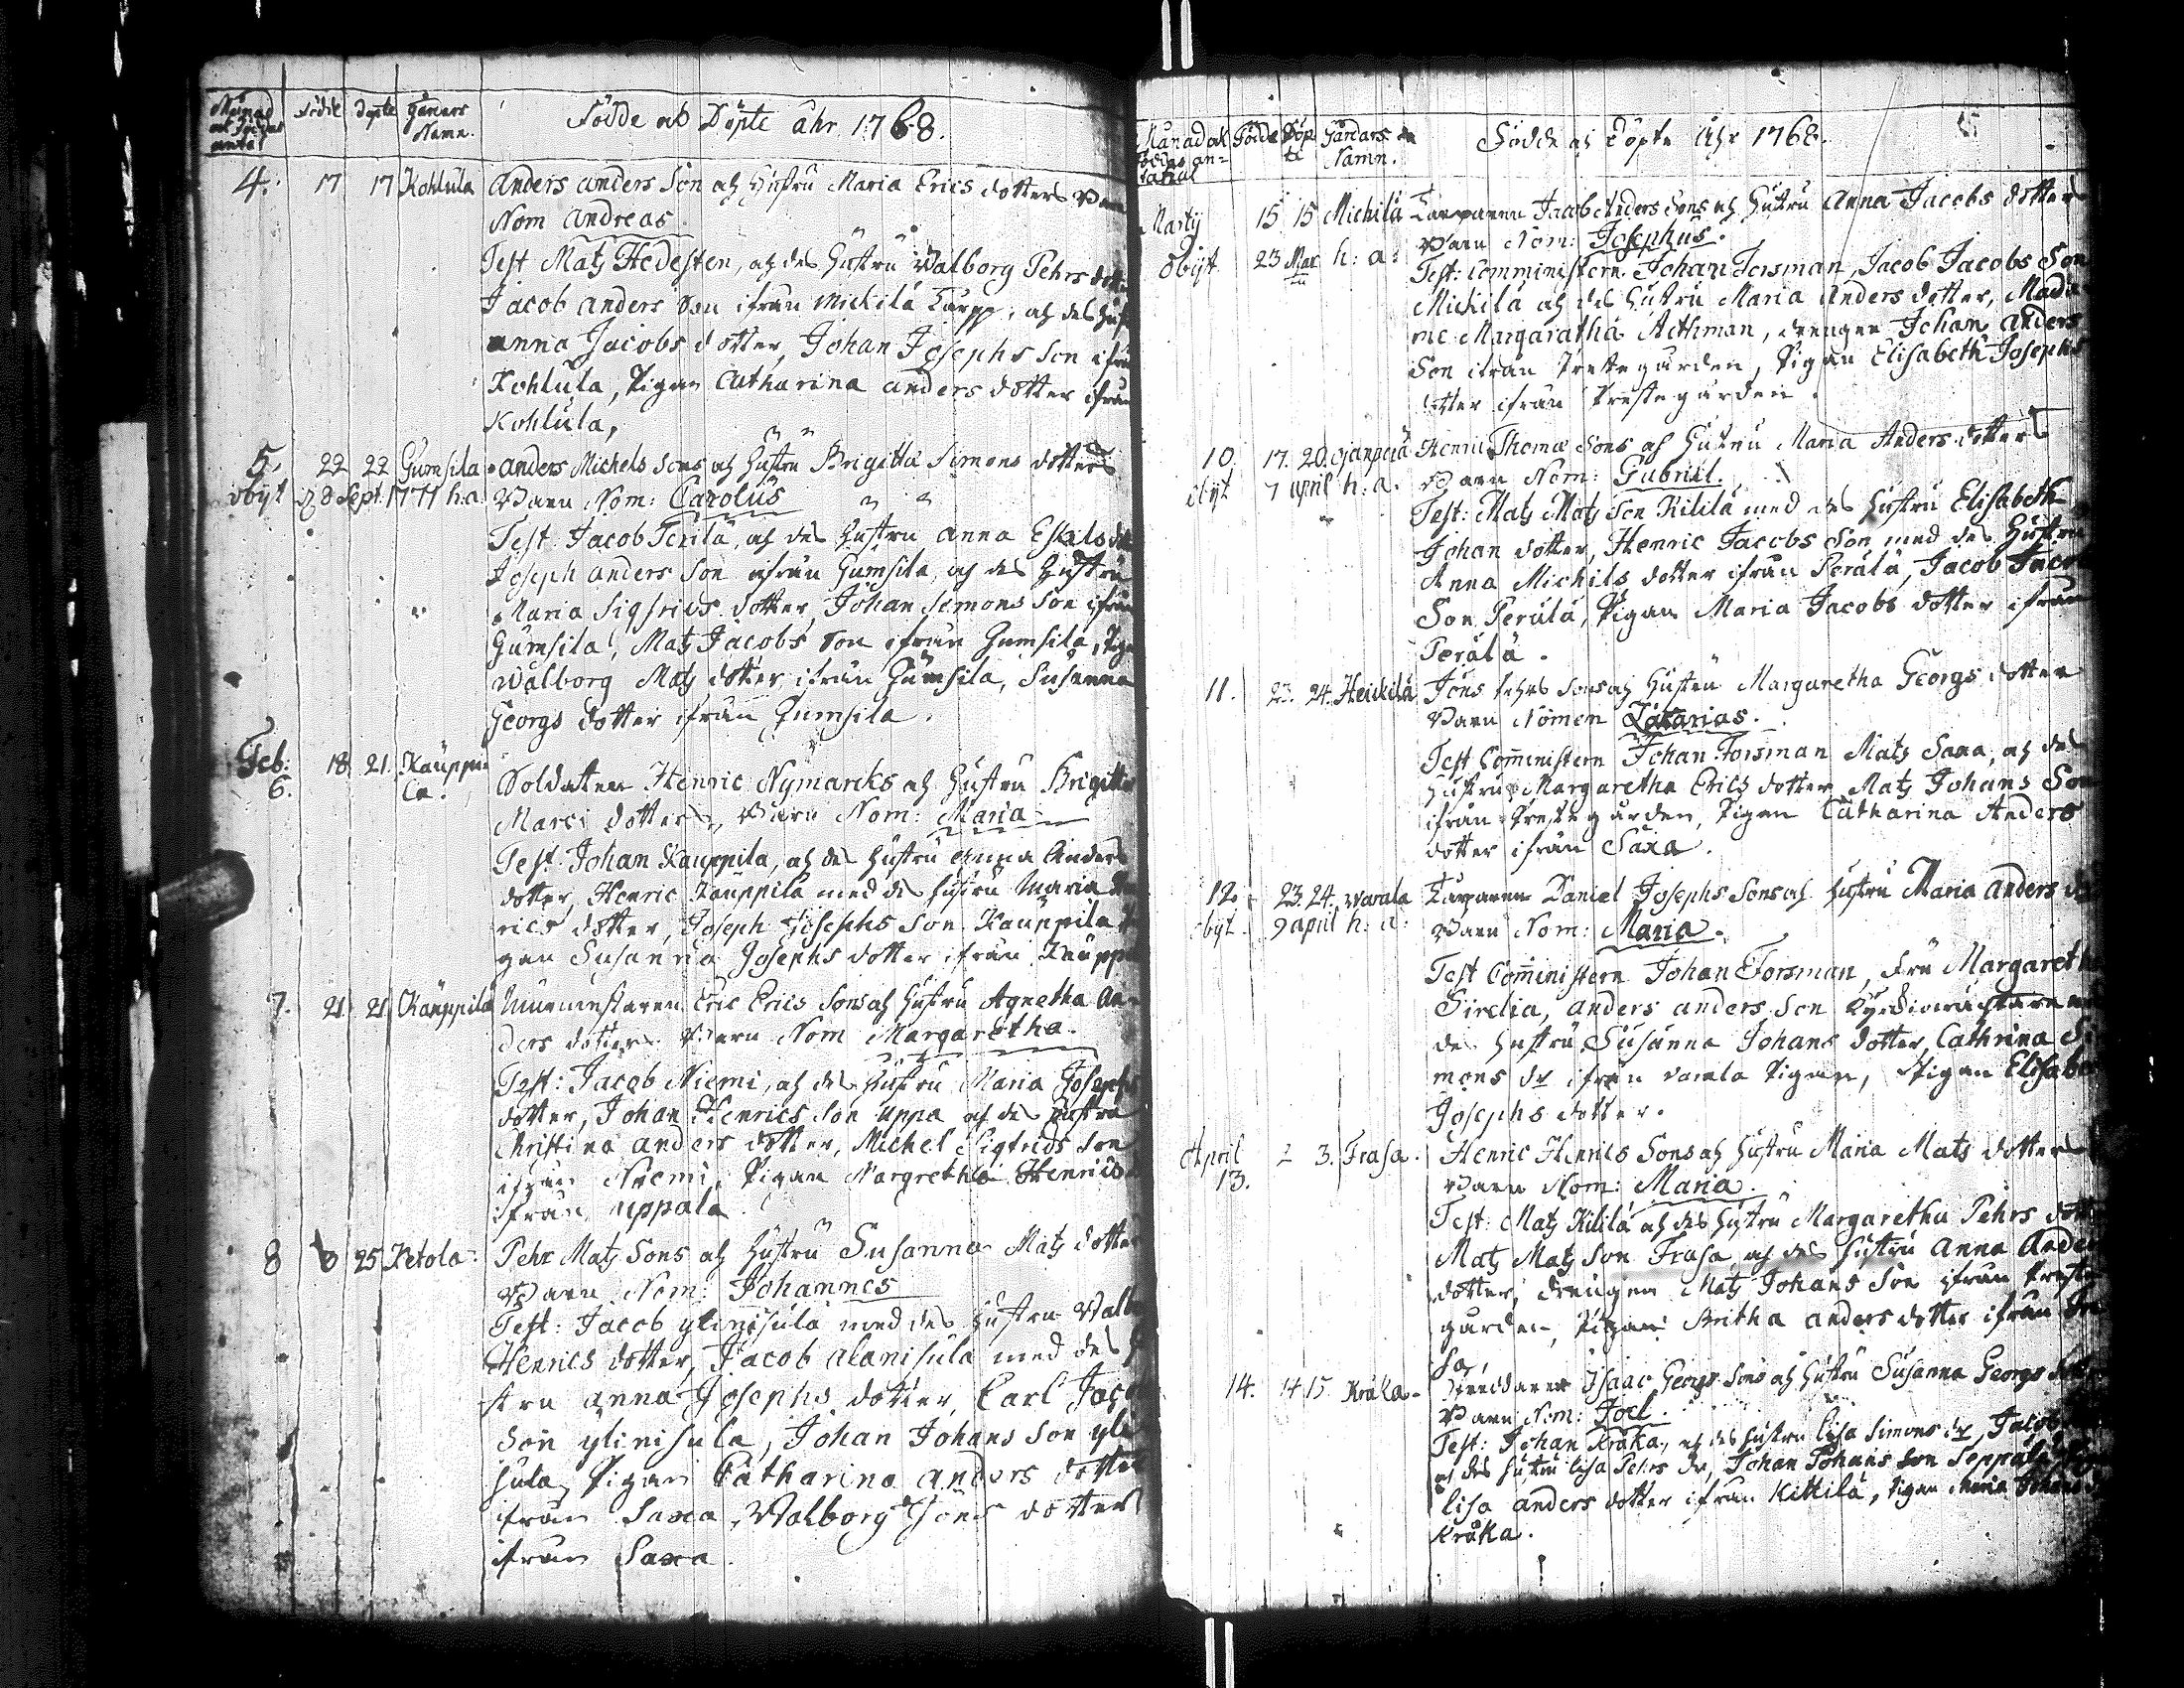 Månad och Födas antal
Födde
Döpte
Gårdars Namn.
Födde och Döpte åhr 1768.
4. 17 17 Kohlula Anders Anders Son och Hustru Maria Erics dotters Barn
Nom Andreas
Test Mats Hedesten, och des Hustru Walborg Pehrs dotter
Jacob Anders Son ifrån Mickilä Torpp, och des Hust
Anna Jacobs dotter, Johan Josephs Son ifrån
Kohlula, Pigan Catharina Anders dotter ifrån
Kohlula,
5. 22 22 Gumsila Anders Michels Sons och Hustru Brigitta Simons dotters
obijt d. 8 Sept. 1771 h.a. Barn Nom: Carolus
Test Jacob Terilä, och des Hustru Anna Eskils
Joseph Anders Son ifrån Gumsila, och des Hustru
Maria Sigfrids dotter, Johan Simons Son ifrån
Gumsila, Mats Jacobs Son ifrån Gumsila, Pigan
Walborg Mats dotter ifrån Gumsila, Susanna
Georgs dotter ifrån Gumsila.
Feb: 18 21. Kauppi-
6. la. Soldaten Henric Nymarcks och Hustru Brigitta
Marci dotters, Barn Nom: Maria
Test Johan Kauppila, och des Hustru Anna Anders
dotter, Henric Kauppila med des Hustru Maria Hen
rics dotter, Joseph Josephs Son Kauppila Pi
gan Susanna Josephs dotter ifrån Kauppi
7. 21 21 Kauppila Murmestaren Eric Erics Sons och Hustru Agnetha An-
ders dotters Barn Nom Margaretha.
Test: Jacob Niemi, och des Hustru Maria Josephs
dotter, Johan Henrics Son Uppa och des Hustru
Christina Anders dotter, Michel Sigfrids Son
ifrån Niemi, Pigan Margretha Henrics
ifrån Uppala
8 25 Ketola. Pehr Mats Sons och Hustru Susanna Mats dotter
Barn Nom: Johannes
Test: Jacob Ylinisula med des Hustru Walb
Henrics dotter, Jacob Alanisula med des Hu
stru Anna Josephs dotter, Carl Jaco
Son Ylinisula, Johan Johans Son Yli
sula, Pigan Catharina Anders dotter
ifrån Saxa, Walborg Jöns dotter
ifrån Saxa.
Månad och Föddas an-
tahl
Födde
Döp
te
Gårdars
Namn.
Födde och Döpte Åhr 1768.
Martij 15 15 Mickilä Torparen Jacob Anders Sons och Hustru Anna Jacobs dotters
Barn Nom: Josephus.
Obijt. 23 Mar h: a: Test: Comministern Johan Forsman, Jacob Jacobs Son
Mickilä och des Hustru Maria Anders dotter, Mada
me Margaratha Aethman, drengen Johan Anders
Son ifrån Prestegården, Pigan Elisabeth Josephs
dotter ifrån Prestegården.
10. 17. 20. Henric Thomæ Sons och Hustru Maria Anders dotters
obijt 7 april h: a. Barn Nom: Gabriel.
Test: Mats Mats Son Kililä med des Hustru Elisabeth
Johan dotter, Henric Jacobs Son med des Hustru
Anna Michils dotter ifrån Perälä, Jacob Jacobs
Son Perälä, Pigan Maria Jacobs dotter ifrån
Perälä.
11. 23. 24. Heickilä Jöns Pehrs Sons och Hustru Margaretha Georgs dotter
Barn Nomen Zakarias.
Test Comministern Johan Forsman Mats Saxa, och des
Hustru Margaretha Erics dotter Mats Johans Son
ifrån Prestegården, Pigan Catharina Anders
dotter ifrån Saxa.
12. 23. 24. Warala Torparen Daniel Josephs Sons och Hustru Maria Anders
obijt. 9 april h: a: Barn Nom: Maria.
Test Comministern Johan Forsman, Fru Margareth
Sirelia, Anders Anders Son
des Hustru Susanna Johans dotter, Cathrina Si
mons dr ifrån Warala Pigan, Pigan Elisabe
Josephs dotter.
April 2 3. Frasa. Henric Henrics Sons och Hustru Maria Mats dotter
13. Barn Nom: Maria.
Test: Mats Kililä och des Hustru Margaretha Pehrs dotter
Mats Mats Son Frasa och des Hustru Anna Anders
dotter, drengen Mats Johans Son ifrån Preste
gården, Pigan Britha Anders dotter ifrån Fra
sa,
14. 14 15. Kråka. Isaac Georgs Sons och Hustru Susanna Georgs dotters
Barn Nom: Joel.
Test: Johan Kråka, och des Hustru Lisa Simons dr, Jacob
och des Hustru Lisa Pehrs dr, Johan Johans Son Seppälä,
Lisa Anders dotter ifrån Kittilä, Pigan Maria Johans
Kråka.